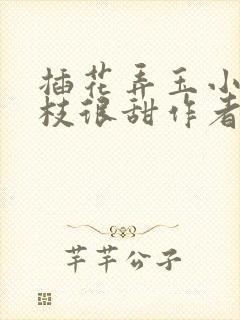 插花弄玉小
枝很甜作者
芊芊公子